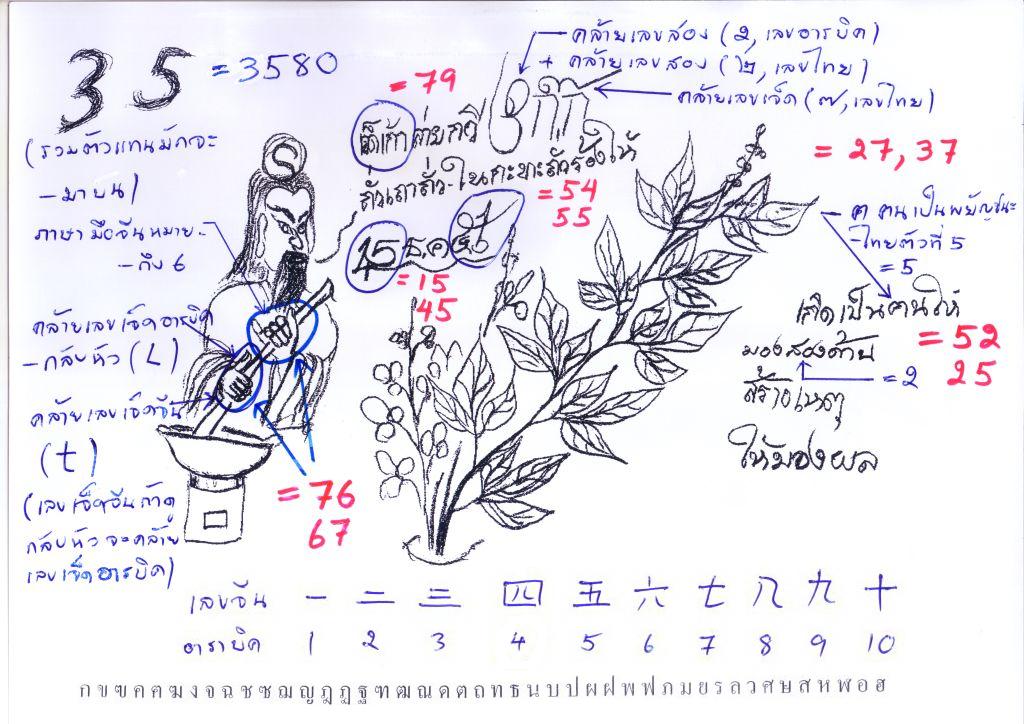 3 5 = 3580
(รวมตัวแทนมักจะ
- มาบน)
ภาษามือจีนหมาย-
- ถึง 6
คล้ายเลขเจ็ดอารบิค
- กลับหัว (L)
คล้ายเลขเจ็ดจีน
(t)
(เลขเจ็ดจีนถ้าดู
กลับหัวจะคล้าย
เลขเจ็ดอารบิค)
= 76
67
คล้ายเลขสอง (2, เลขอารบิค)
+ คล้ายเลขสอง (๒, เลขไทย)
คล้ายเลขเจ็ด (๗, เลขไทย)
= 79
= 27, 37
ถั่วเถาถั่วในกะทะถั่วร้องไห้
= 54
55
15 ธ.ค.
= 15
45
ค คนเป็นพยัญชนะ
- ไทยตัวที่ 5
= 5
เกิดเป็นคนให้
= 52
25
มองสองด้าน
= 2
สร้างเหตุ
ให้มองผล
เลขจีน 一 二 三 四 五 六 七 八 九 十
อารบิค 1 2 3 4 5 6 7 8 9 10
ก ข ฃ ค ฅ ฆ ง จ ฉ ช ซ ฌ ญ ฎ ฏ ฐ ฑ ฒ ณ ด ต ถ ท ธ น บ ป ผ ฝ พ ฟ ภ ม ย ร ล ว ศ ษ ส ห ฬ อ ฮ